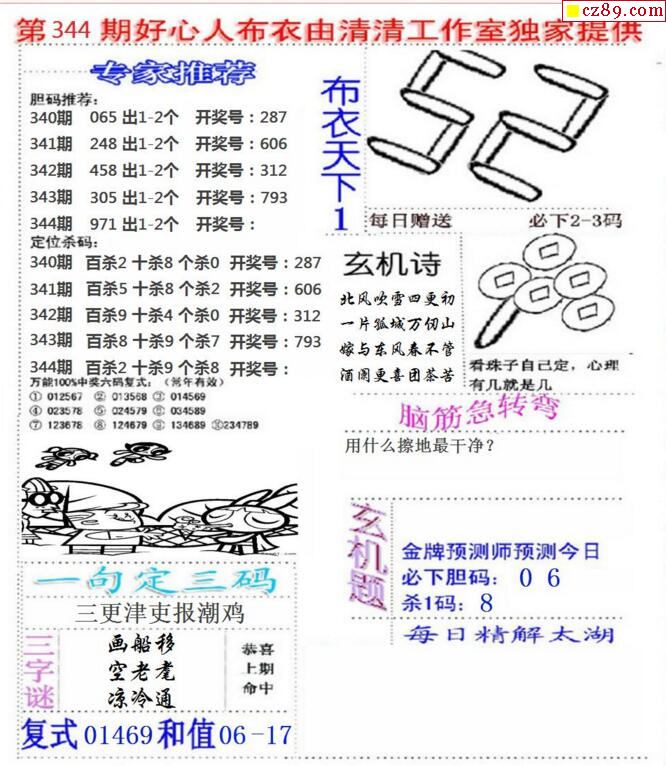 cz89.com
第344期好心人布衣由清清工作室独家提供
专家推荐
胆码推荐：
340期 065 出1-2个 开奖号：287
341期 248 出1-2个 开奖号：606
342期 458 出1-2个 开奖号：312
343期 305 出1-2个 开奖号：793
344期 971 出1-2个 开奖号：
定位杀码：
340期 百杀2 十杀8 个杀0 开奖号：287
341期 百杀5 十杀8 个杀2 开奖号：606
342期 百杀9 十杀4 个杀0 开奖号：312
343期 百杀8 十杀9 个杀7 开奖号：793
344期 百杀2 十杀9 个杀8 开奖号：
万能100%中奖六码复式：（常年有效）
① 012567 ② 013568 ③ 014569
④ 023578 ⑤ 024579 ⑥ 034589
⑦ 123678 ⑧ 124679 ⑨ 134689 ⑩234789
布衣天下1
52
每日赠送 必下2-3码
玄机诗
北风吹雪四更初
一片孤城万仞山
嫁与东风春不管
酒阑更喜团茶苦
看珠子自己定，心理
有几就是几
脑筋急转弯
用什么擦地最干净？
玄机题
金牌预测师预测今日
必下胆码：0 6
杀1码：8
每日精解太湖
一句定三码
三更津吏报潮鸡
三字谜
画船移
空老耄
凉冷通
恭喜
上期
命中
复式01469和值06-17